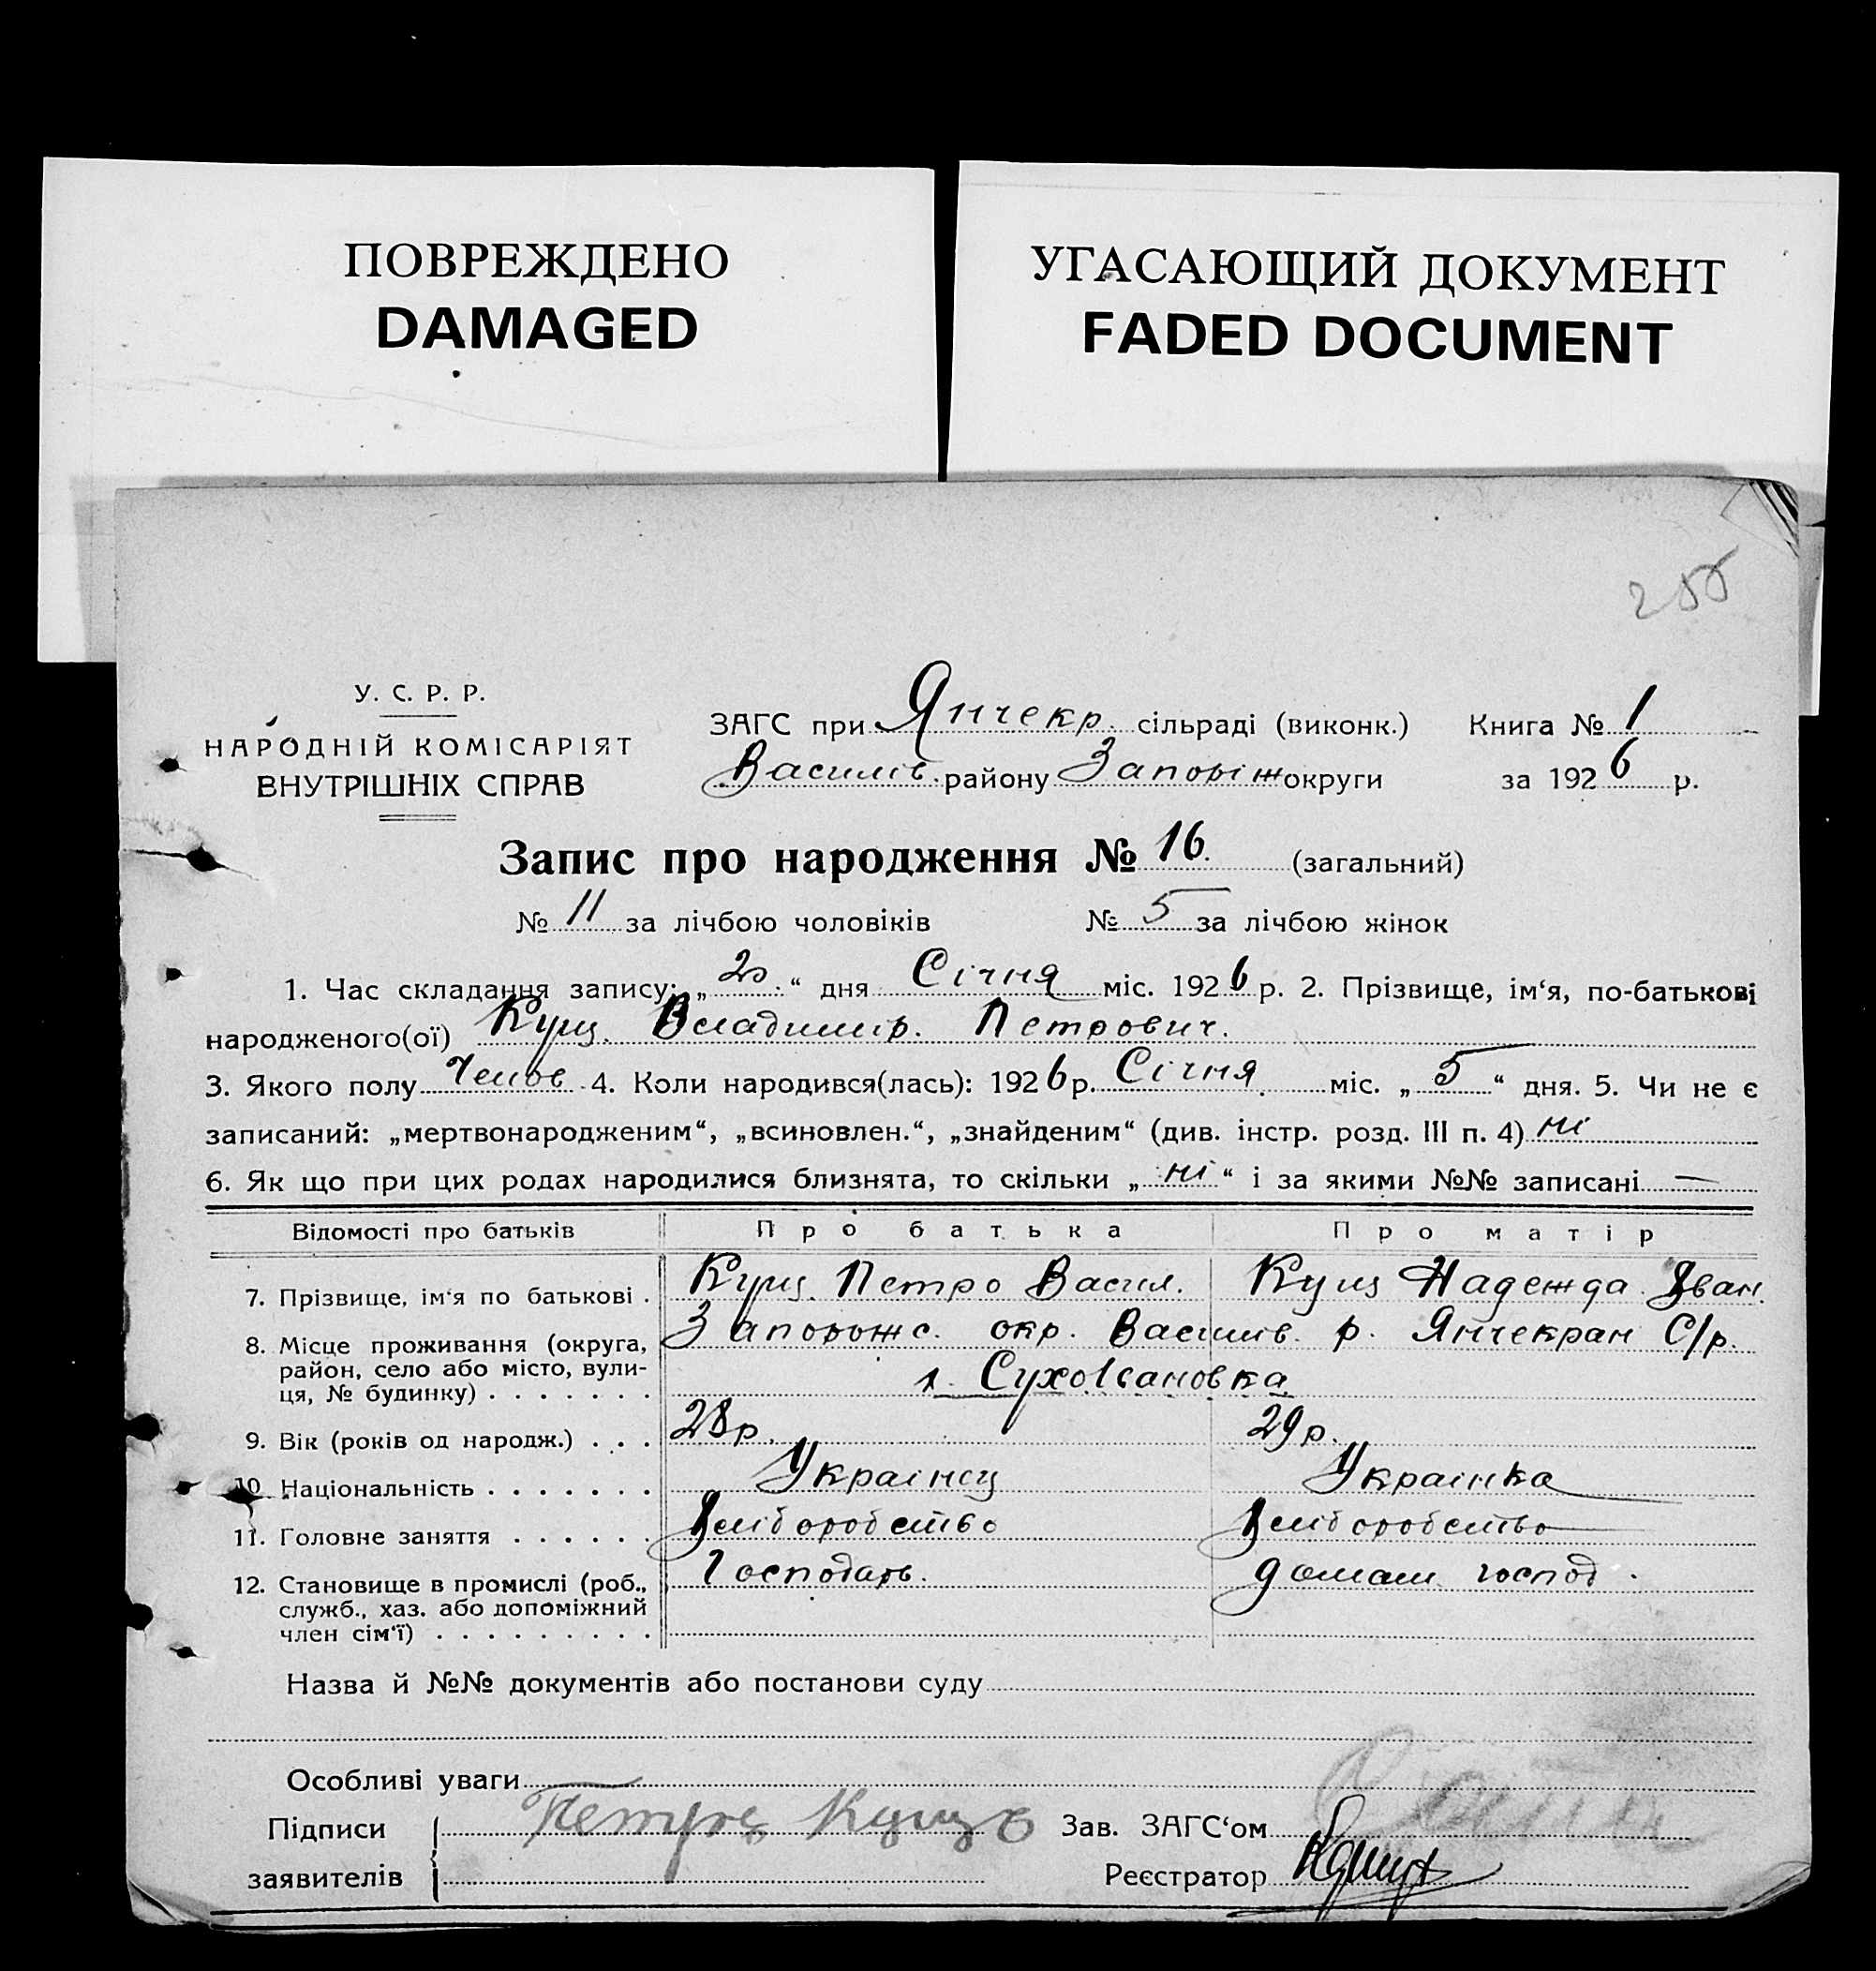 ПОВРЕЖДЕНО
DAMAGED
УГАСАЮЩИЙ ДОКУМЕНТ
FADED DOCUMENT
255
У. С. Р. Р.
НАРОДНІЙ КОМІСАРІЯТ
ВНУТРІШНІХ СПРАВ
ЗАГС при Янчекр. сільраді (виконк.) Книга № 1
Василів. району Запоріж округи за 1926 р.
Запис про народження № 16. (загальний)
№ 11 за лічбою чоловіків № 5 за лічбою жінок
1. Час складання запису: „20“ дня Січня міс. 1926 р. 2. Прізвище, ім‘я, по-батькові
народженого(ої) Кущ. Владимір. Петрович.
3. Якого полу Чолов 4. Коли народився(лась): 1926 р. Січня міс. „5“ дня. 5. Чи не є
записаний: „мертвонародженим“, „всиновлен.“, „знайденим“ (див. інстр. розд. III п. 4) ні
6. Як що при цих родах народилися близнята, то скільки „ні“ і за якими №№ записані —
Відомості про батьків Про батька Про матір
7. Прізвище, ім‘я по батькові . Кущ. Петро Васил. Кущ Надежда Іван.
8. Місце проживання (округа, Запорожс. окр. Василів. р. Янчекран С/р.
район, село або місто, вули-
ця, № будинку) . . . . . . .
9. Вік (років од народж.) . . . 28 р. 29 р.
10. Національність . . . . . . . Украінец Украінка
11. Головне заняття . . . . . . Хліборобство Хліборобство
12. Становище в промислі (роб., Господарь. домаш. господ.
служб., хаз. або допоміжний
член сім‘ї) . . . . . . . . .
Назва й №№ документів або постанови суду
Особливі уваги
Підписи Кущъ Зав. ЗАГС‘ом
заявителів Реєстратор